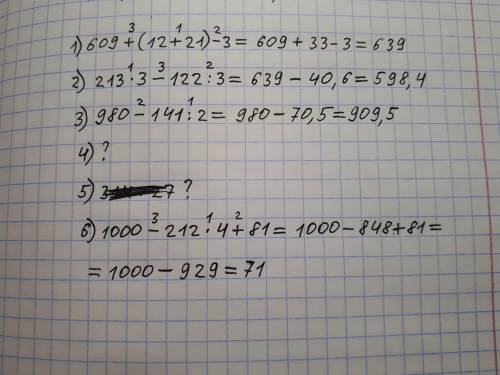 1) 609 + (12 + 21) - 3 = 609 + 33 - 3 = 639
2) 213 · 3 - 122 : 3 = 639 - 40,6 = 598,4
3) 980 - 141 : 2 = 980 - 70,5 = 909,5
4) ?
5) ?
6) 1000 - 212 · 4 + 81 = 1000 - 848 + 81 =
= 1000 - 929 = 71